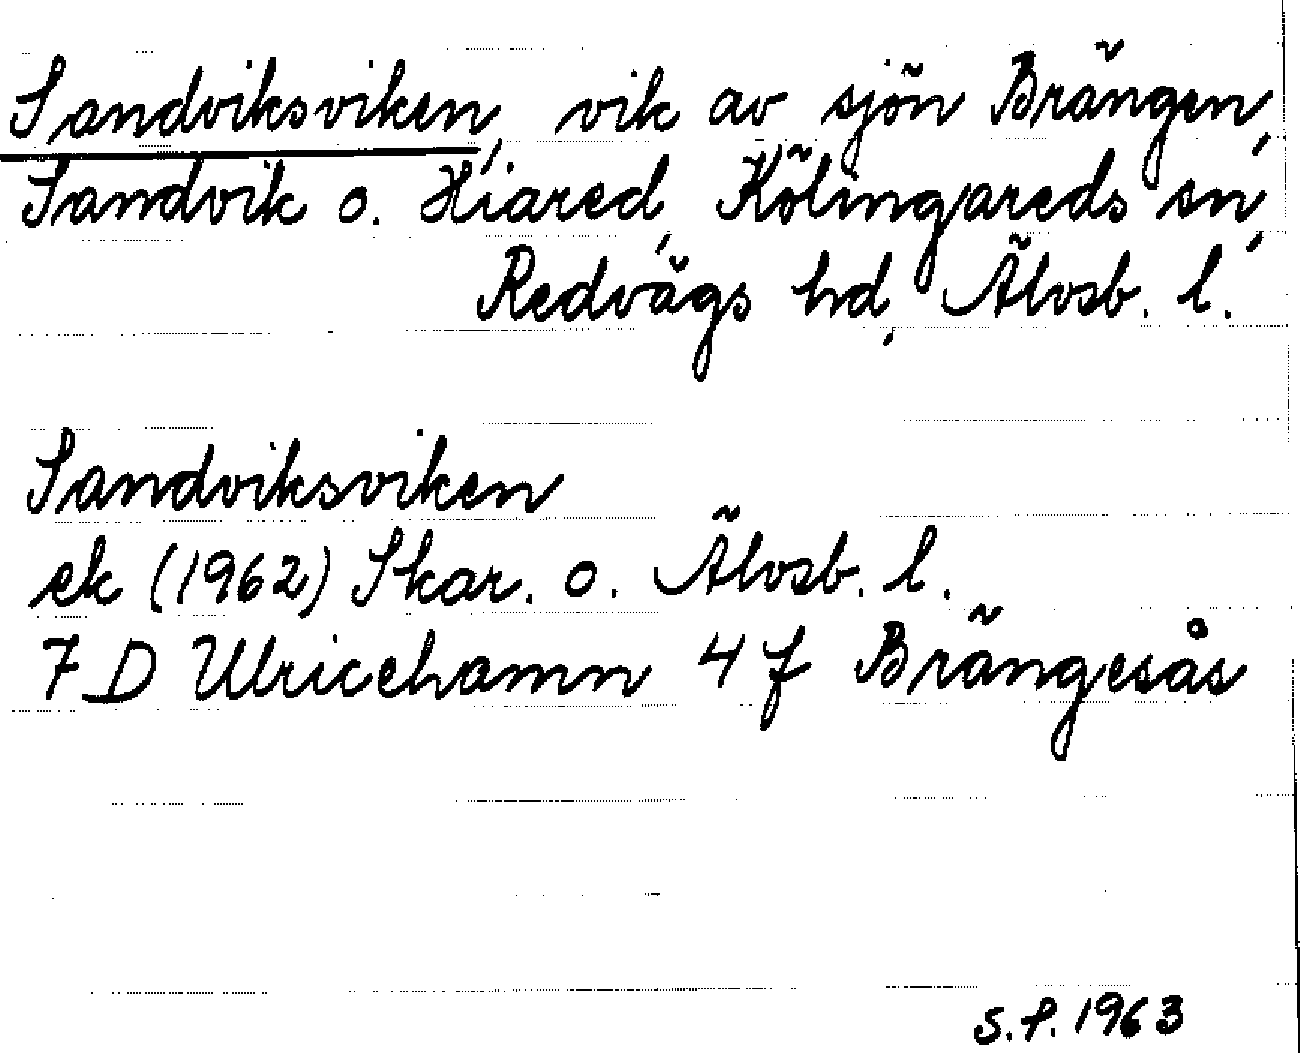 Sandviksviken, vik av sjön Brängen,
Sandvik o. Hiared, Kölingareds sn,
Redvägs hd, Älvsb. l.
Sandviksviken
ek (1962) Skar. o. Älvsb. l.
7 D Ulricehamn 4 f Brängesås
S.P. 1963